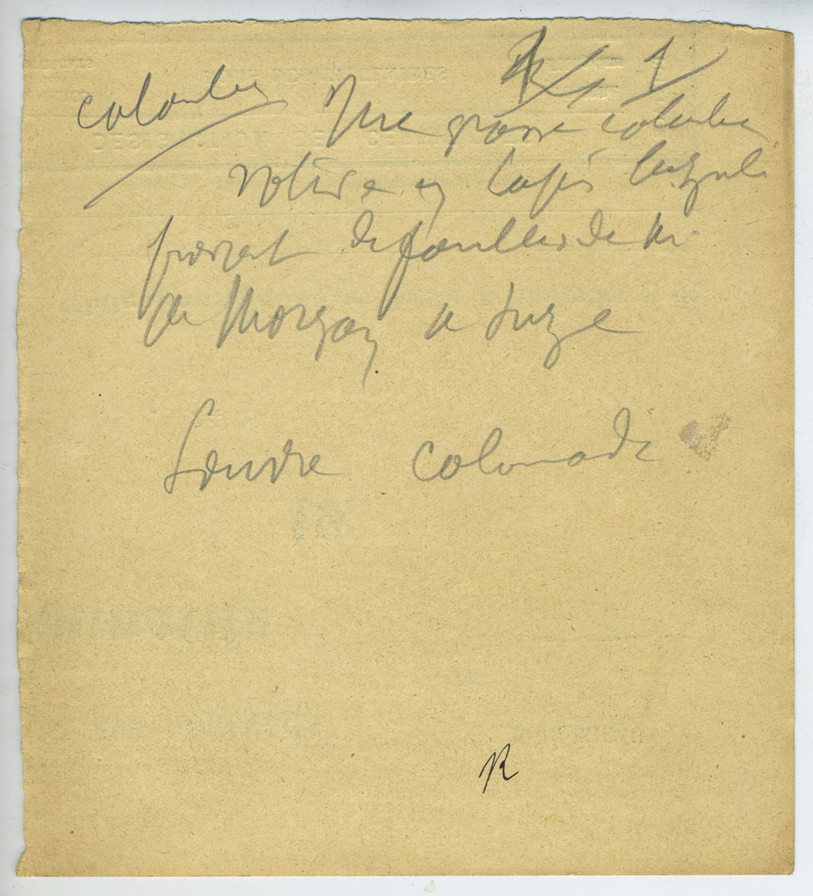 colombe
Une grosse colombe
votive en lapis lazuli
provt des fouilles de Mr
de Morgan à Suze
Louvre colonnade
R